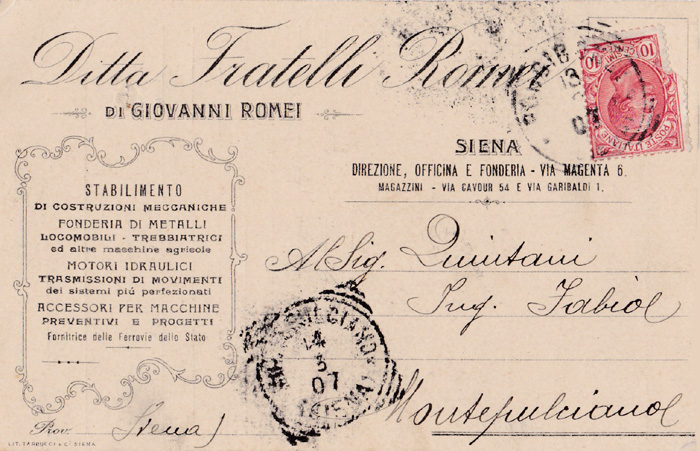 Ditta Fratelli Romei
DI GIOVANNI ROMEI
SIENA
DIREZIONE, OFFICINA E FONDERIA - VIA MAGENTA 6.
MAGAZZINI - VIA CAVOUR 54 E VIA GARIBALDI 1.
STABILIMENTO
DI COSTRUZIONI MECCANICHE
FONDERIA DI METALLI
LOCOMOBILI - TREBBIATRICI
ed altre macchine agricole
MOTORI IDRAULICI
TRASMISSIONI DI MOVIMENTI
dei sistemi piú perfezionati
ACCESSORI PER MACCHINE
PREVENTIVI E PROGETTI
Fornitrice delle Ferrovie dello Stato
Al Sig. Quintani
Ing. Fabio
Montepulciano
Prov. Siena
10
CENT. 10
POSTE ITALIANE
13
07
MONTEPULCIANO
14
3
07
(SIENA)